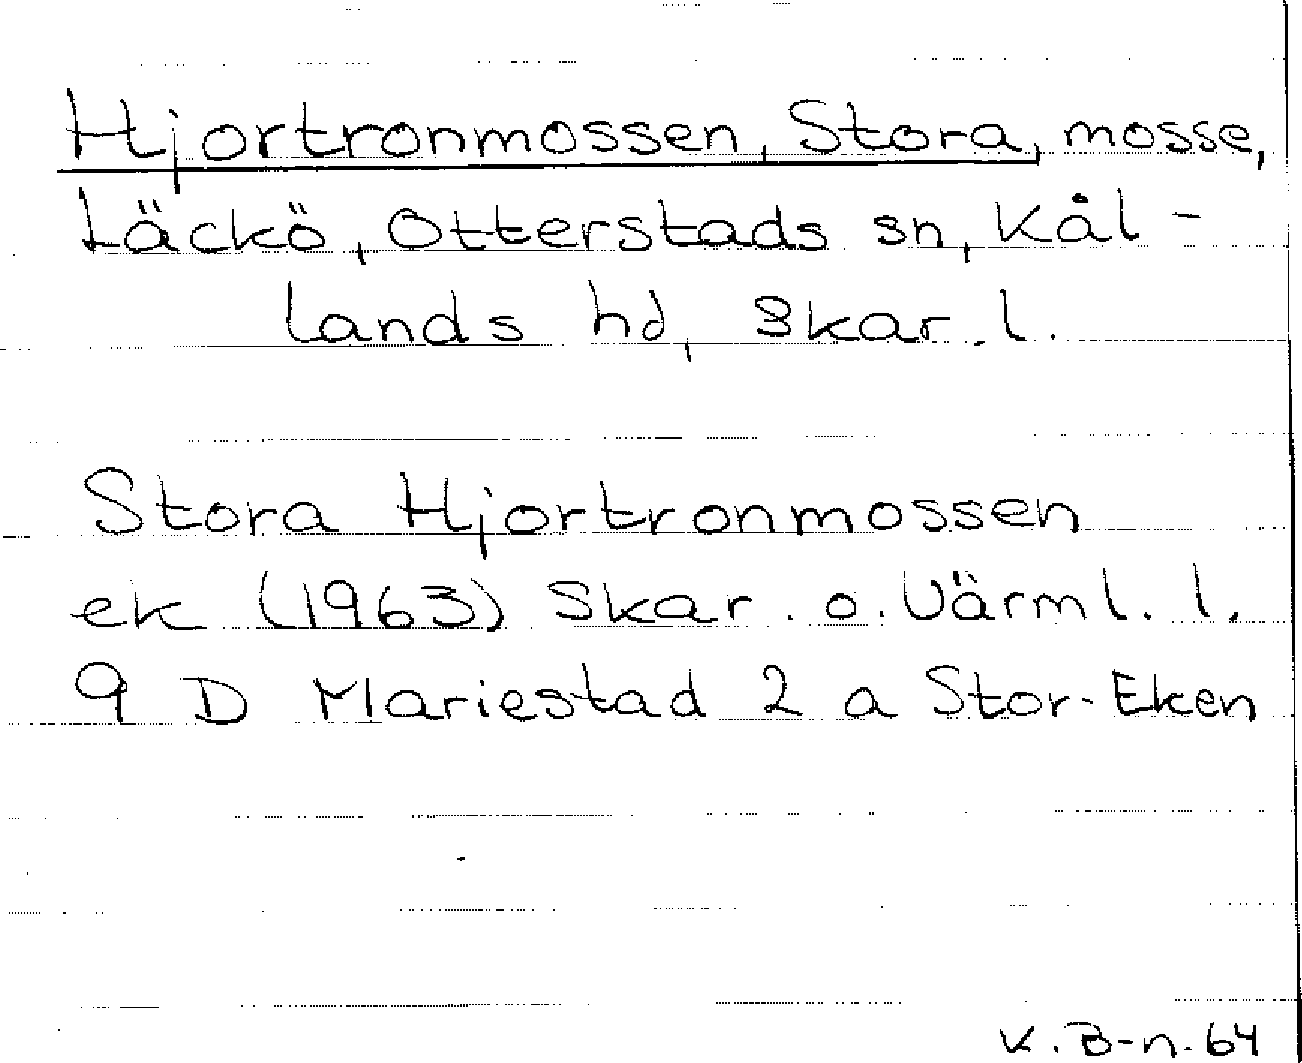 Hjortronmossen, Stora, mosse,
Läckö, Otterstads sn, Kål-
lands hd, Skar. l.
Stora Hjortronmossen
ek (1963) Skar. o. Värml. l.
9 D Mariestad 2 a Stor-Eken
K. B-n. 64